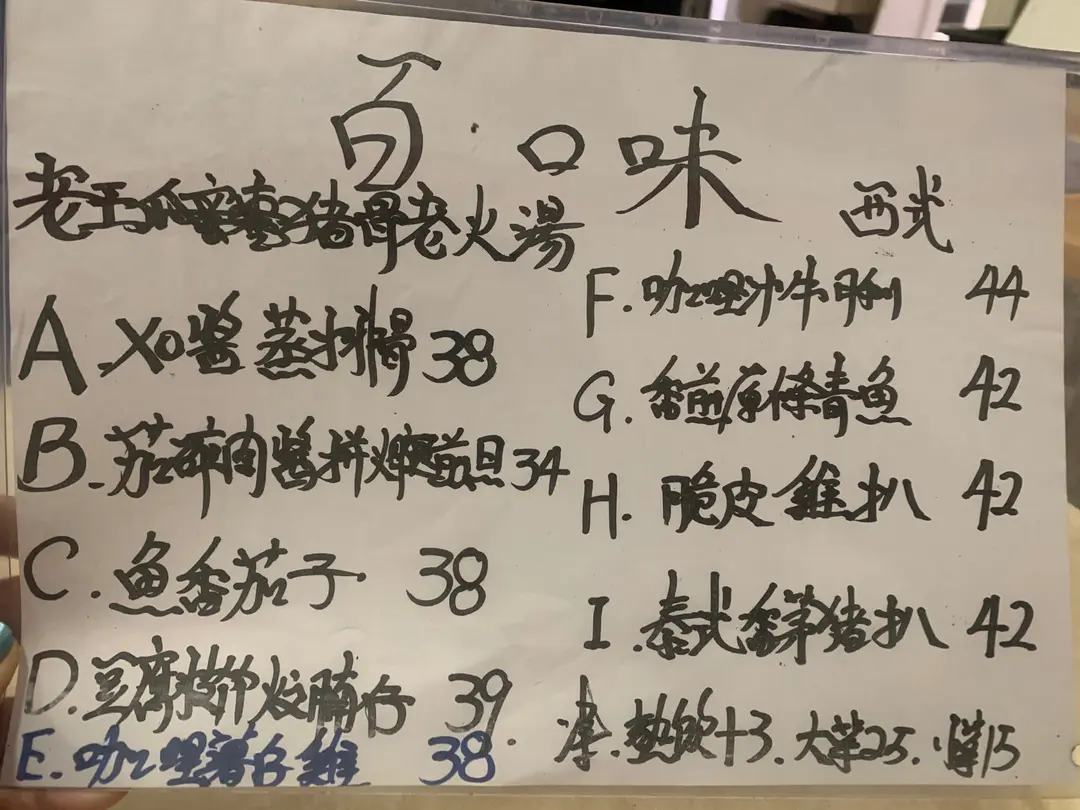 百口味
老王瓜蜜棗猪骨老火湯
A.XO醬蒸排骨 38
B.茄碎肉醬拼煎旦 34
C.魚香茄子 38
D.豆腐枝竹炆腩仔 39.
E.咖喱薯仔雞 38
西式
F.咖喱汁牛脷 44
G.香煎原條青魚 42
H.脆皮雞扒 42
I.泰式香茅猪扒 42
凍.热飲+3.大菜25.菜15